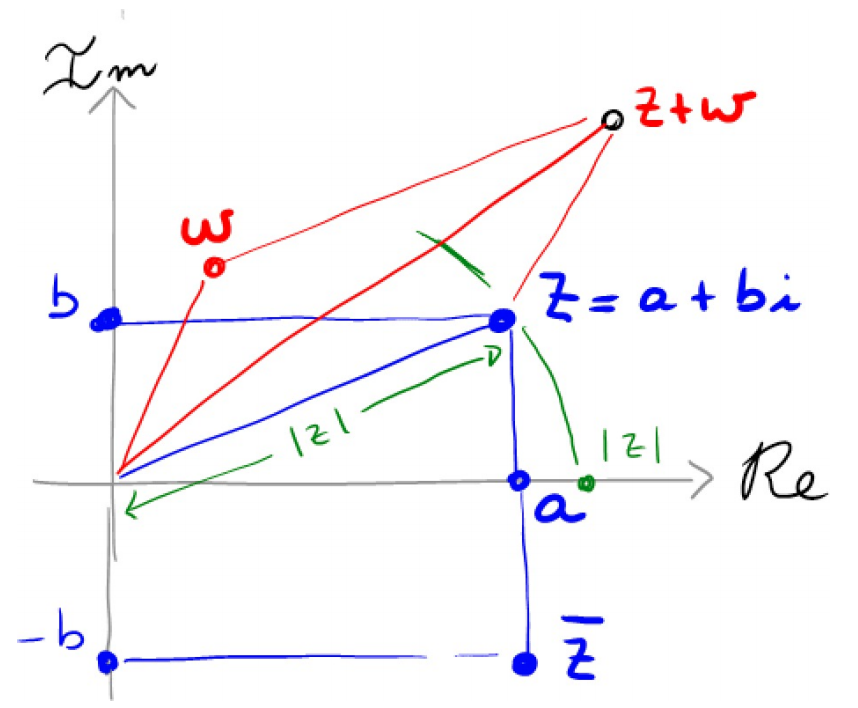 Im
z+w
w
b
z = a + bi
|z|
|z|
Re
a
-b
z̅